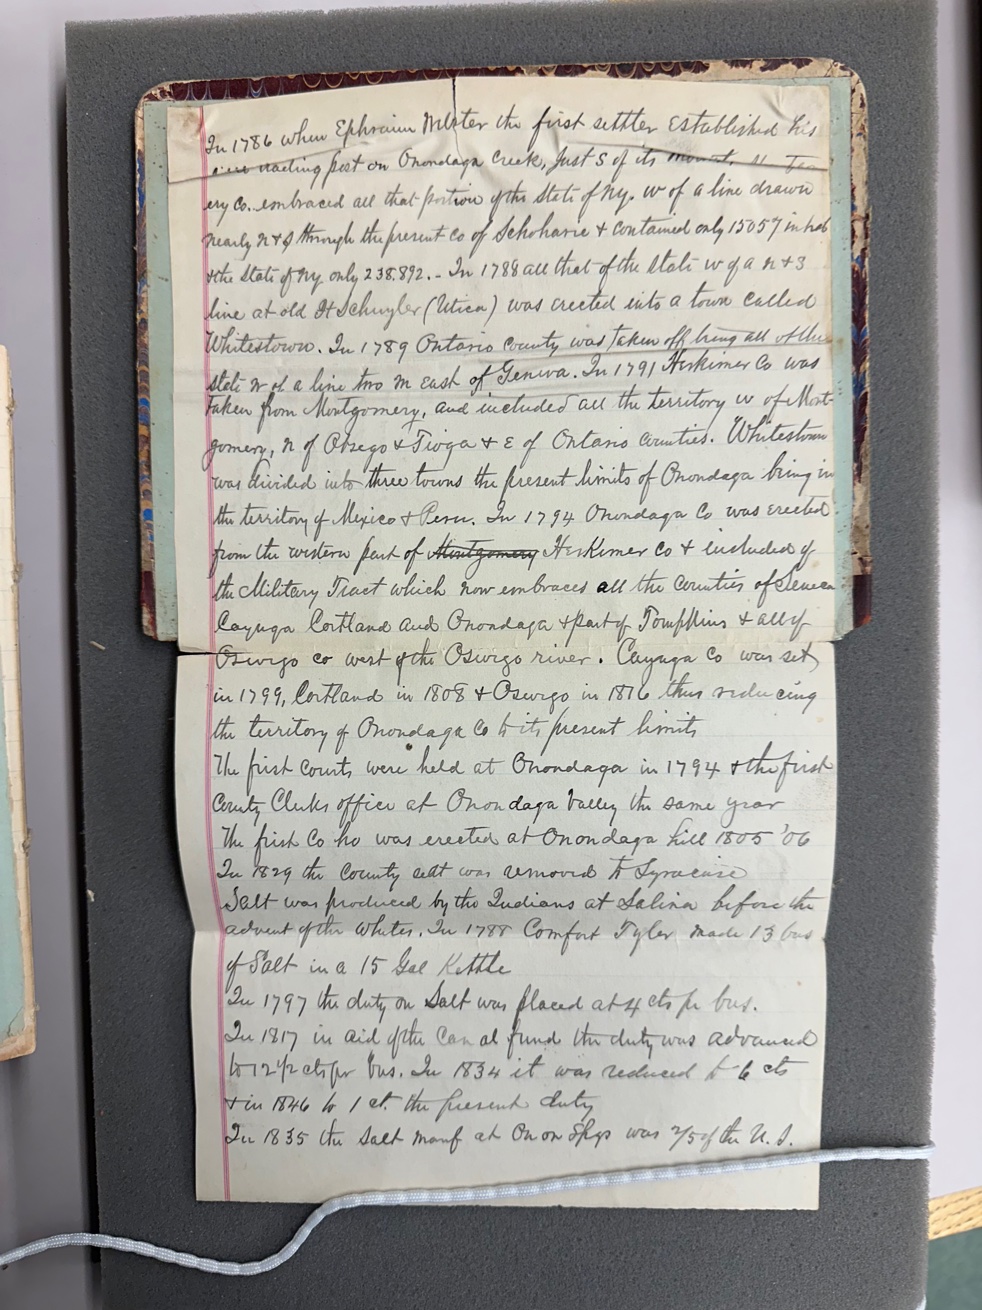 In 1786 when Ephraim Webster the first settler Established his
trading post on Onondaga Creek, just S of its mouth,
ery Co. embraced all that portion of the state of Ny. w of a line drawn
nearly N & S through the present co of Schoharie & contained only 15057 inhab
& the State of Ny only 238.892. - In 1788 all that of the state w of a n & S
line at old Ft Schuyler (Utica) was erected into a town called
Whitestown. In 1789 Ontario County was taken off being all of the
state W of a line two m East of Geneva. In 1791 Herkimer Co was
taken from Montgomery, and included all the territory w of Mont-
gomery, n of Otsego & Tioga & E of Ontario Counties. Whitestown
was divided into three towns the present limits of Onondaga being in
the territory of Mexico & Peru. In 1794 Onondaga Co was Erected
from the western part of Montgomery Herkimer Co & included of
the Military Tract which now embraces all the Counties of Seneca
Cayuga Cortland and Onondaga & part of Tompkins & all of
Oswego co west of the Oswego river. Cayuga Co was set
in 1799, Cortland in 1808 & Oswego in 1816 thus reducing
the territory of Onondaga Co to its present limits
The first Courts were held at Onondaga in 1794 & the first
County Clerks office at Onondaga Valley the same year
The first Co ho was erected at Onondaga hill 1805 '06
In 1829 the County seat was removed to Syracuse
Salt was produced by the Indians at Salina before the
advent of the Whites. In 1788 Comfort Tyler made 13 bus
of Salt in a 15 Gal Kettle
In 1797 the duty on Salt was placed at 4 cts pr bus.
In 1817 in aid of the Canal fund the duty was advanced
to 12 1/2 cts pr bus. In 1834 it was reduced to 6 cts
& in 1846 to 1 ct. the present duty
In 1835 the Salt manf at Onon Spgs was 2/5 of the U. S.